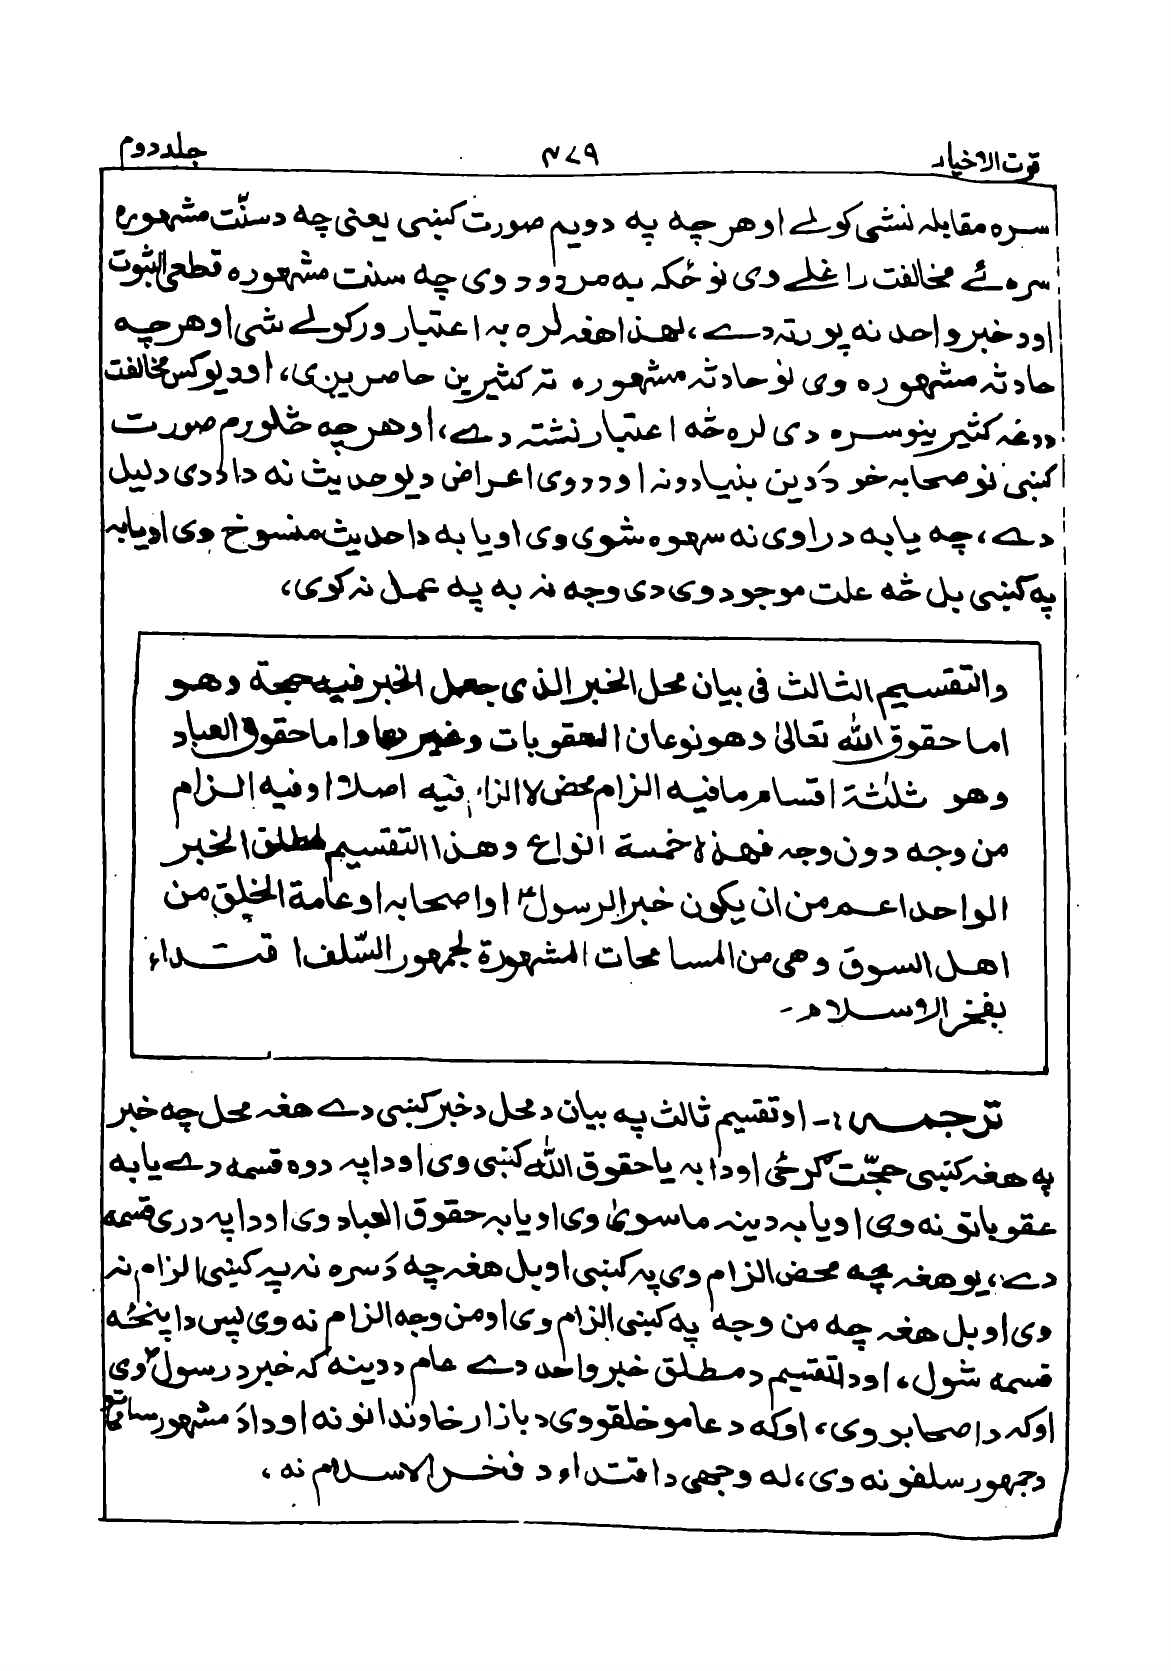 قوت الاخیار
۴۷۹
جلد دوم
سره مقابله نشي کولے اوهرچه په دویم صورت کښي یعني چه دسنّت مشهوره
سره ئے مخالفت راغلے دی نو ځکه به مردود وی چه سنت مشهوره قطعي الثبوت
اود خبر واحد نه پورته دے، لهذا هغه لره به اعتبار ورکولے شي اوهرچه
حادثه مشهوره وی نو حادثه مشهوره ته کثیرین حاضریږی، اود یوکس مخالفت
دوغه کثیرینو سره دی لره څه اعتبار نشته دے، اوهرچه څلورم صورت
کښي نو صحابه خو دَدین بنیاد ونه اود دوی اعراض دیو حدیث نه دا ددی دلیل
دے، چه یا به دراوی نه سهوه شوی وی اویا به دا حدیث منسوخ وی اویا به
په کښي بل څه علت موجود وی دی وجه نه به په عمل نه کوی،
والتقسیم الثالث فی بیان محل الخبر الذی جعل الخبر فیه حجة وهو
اما حقوق الله تعالیٰ وهو نوعان العقوبات وغیرها واما حقوق العباد
وهو ثلثة اقسام مافیه الزام محض لا الزام فیه اصلا او فیه الزام
من وجه دون وجه فهذه خمسة انواع وهذا التقسیم لمطلق الخبر
الواحد اعم من ان یکون خبر الرسول ؑ او اصحابه او عامة الخلق من
اهل السوق وهی من المسامحات المشهورة لجمهور السّلف اقتداء
بفخر الاسلام۔
ترجمه:۔ او تقسیم ثالث په بیان د محل د خبر کښي دے هغه محل چه خبر
په هغه کښي حجّت ګرځی اودا به یا حقوق الله کښي وی اودا په دوه قسمه دے یا به
عقوباتو نه وی اویا به دینه ماسویٰ وی اویا به حقوق العباد وی اودا په دری قسمه
دے، یوهغه چه محض الزام وی په کښي اوبل هغه چه دَسره نه په کښي الزام نه
وی اوبل هغه چه من وجه په کښي الزام وی اومن وجه الزام نه وی پس دا پنځه
قسمه شول، اودا تقسیم د مطلق خبر واحد دے عام ددینه که خبر د رسول ؑ وی
اوکه دا صحابو وی، اوکه د عامو خلقو وی د بازار خاوندانو نه اودا دَ مشهور
د جمهور سلفو نه وی، له وجهی دا قتداء د فخر الاسلام نه،